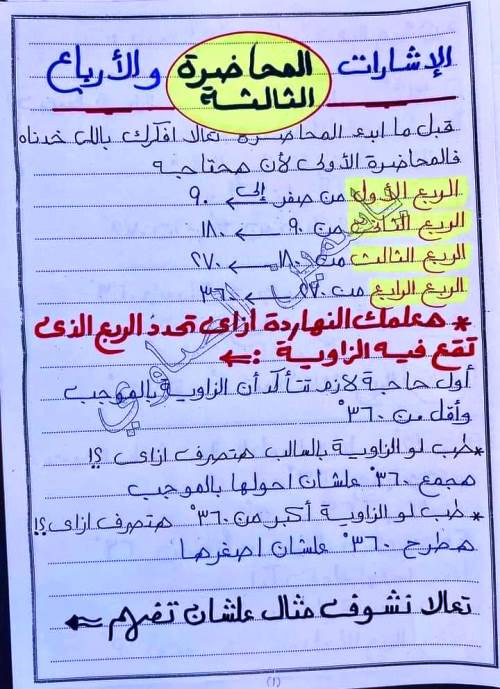 الإشارات المحاضرة والأرباع
الثالثة
قبل ما ابدء المحاضرة تعالا افكرك باللى خدناه
فالمحاضرة الأولى لأن هحتاجه
الربع الأول من صفر إلى ← ٩٠
الربع الثانى من ٩٠ ← ١٨٠
الربع الثالث من ١٨٠ ← ٢٧٠
الربع الرابع من ٢٧٠ ← ٣٦٠
* هعلمك النهاردة ازاى تحدد الربع الذى
تقع فيه الزاوية :←
أول حاجة لازم تتأكد أن الزاوية بالموجب
وأقل من ٣٦٠°
* طب لو الزاوية بالسالب هتصرف ازاى ؟!
هجمع ٣٦٠° علشان احولها بالموجب
* طب لو الزاوية أكبر من ٣٦٠° هتصرف ازاى؟!
هطرح ٣٦٠° علشان اصغرها
تعالا نشوف مثال علشان تفهم ⇐
(١)